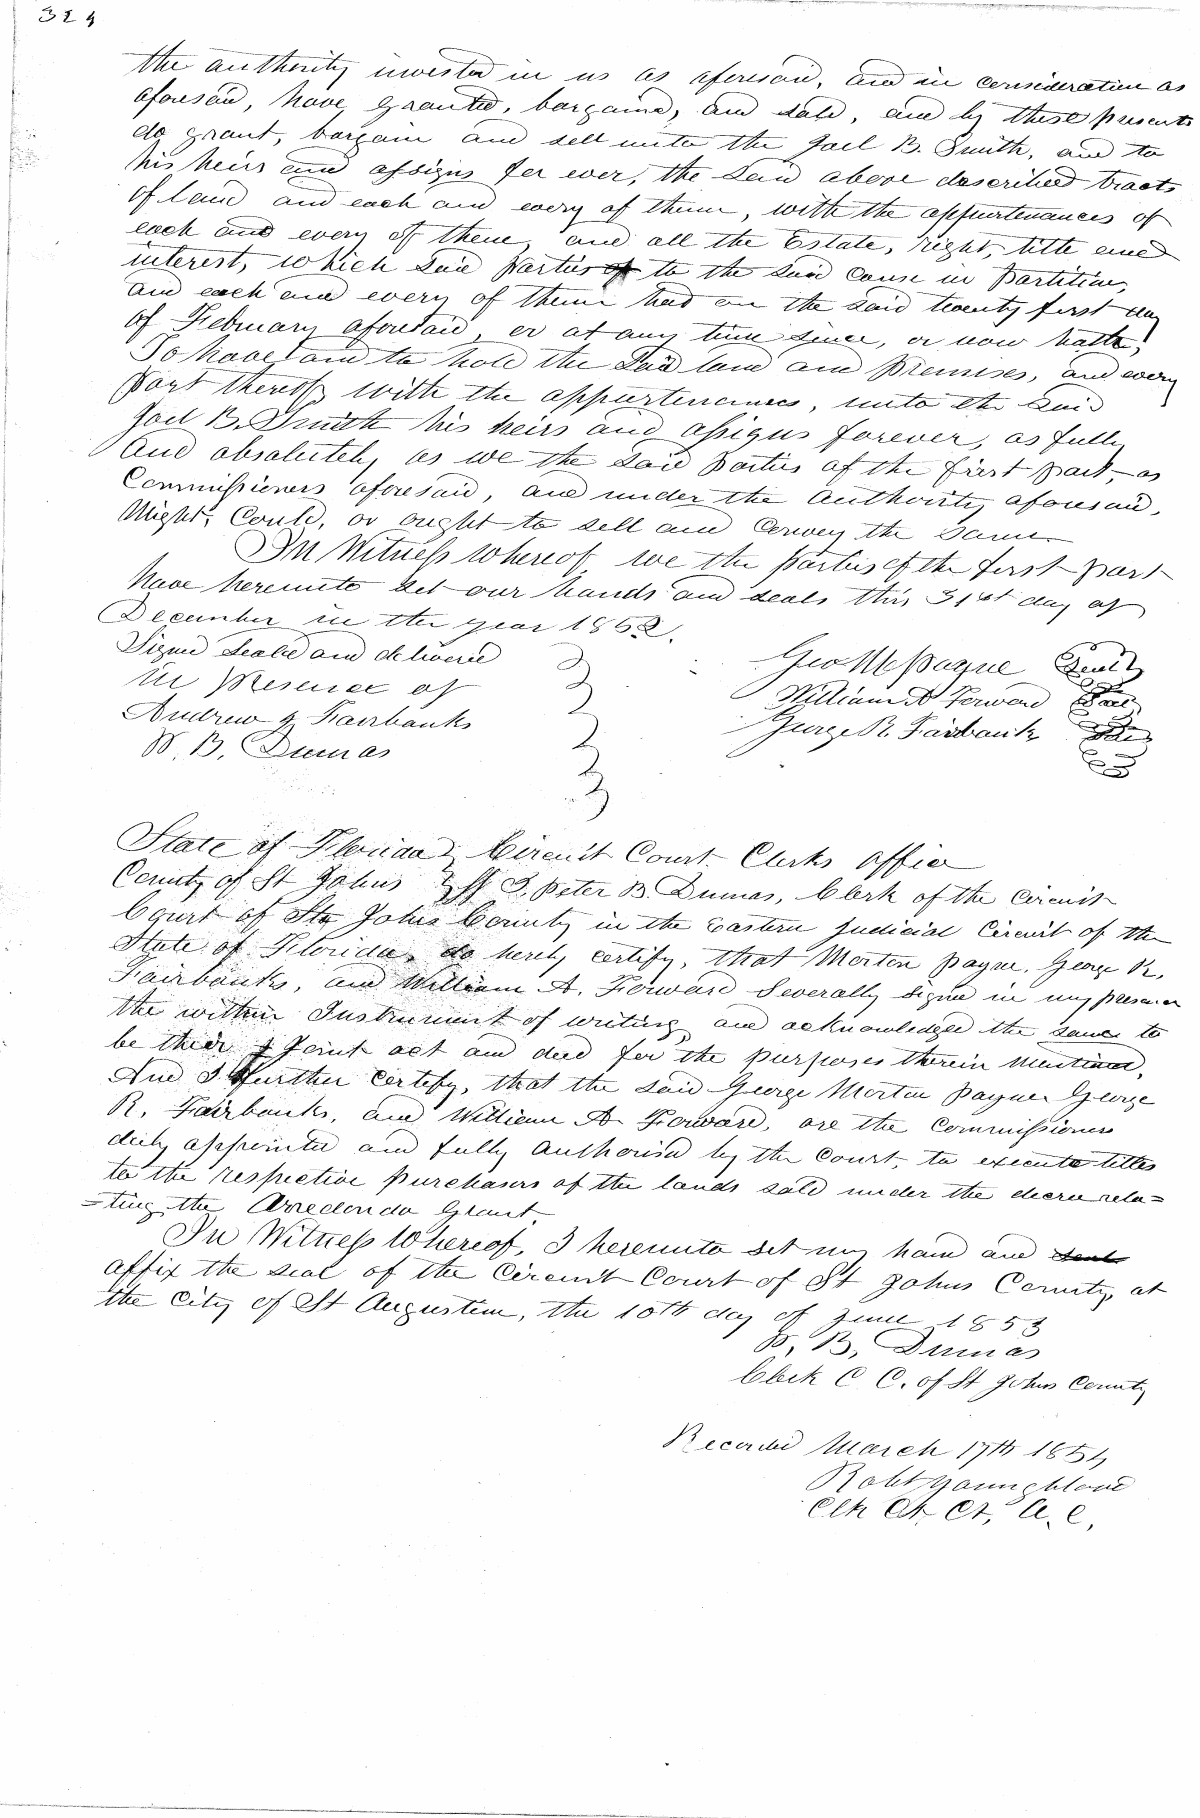 324
the authority invested in us as aforesaid, and in consideration as
aforesaid, have granted, bargained, and sold, and by these presents
do grant, bargain and sell unto the Joel B. Smith, and to
his heirs and assigns for ever, the said above described tracts
of land and each and every of them, with the appurtenances of
each and every of them, and all the Estate, right, title and
interest, which said parties to the said cause in partition,
and each and every of them had on the said twenty first day
of February aforesaid, or at any time since, or now hath,
To have and to hold the said land and premises, and every
part thereof, with the appurtenances, unto the said
Joel B. Smith his heirs and assigns forever, as fully
and absolutely, as we the said parties of the first part, as
Commissioners aforesaid, and under the authority aforesaid,
Might, Could, or ought to sell and Convey the same
In Witness whereof, we the parties of the first part
have hereunto set our hands and seals this 31st day of
December in the year 1852.
Signed sealed and delivered
in presence of
Andrew J Fairbanks
P. B. Dumas
Geo M Payne Seal
William A Forward Seal
George R. Fairbanks Seal
State of Florida Circuit Court Clerks office
County of St Johns SS I, Peter B. Dumas, Clerk of the Circuit
Court of St Johns County in the Eastern Judicial Circuit of the
State of Florida, do hereby certify, that Morton Payne, George R.
Fairbanks, and William A. Forward severally signed in my presence
the within Instrument of writing, and acknowledged the same to
be their Joint act and deed for the purposes therein mentioned,
And I further Certify, that the said George Morton Payne George
R. Fairbanks, and William A. Forward, are the Commissioners
duly appointed and fully authorised by the Court, to execute titles
to the respective purchasers of the lands sold under the decree rela=
=ting the Arredondo Grant.
In Witness Whereof, I hereunto set my hand and seal
affix the seal of the Circuit Court of St Johns County, at
the City of St Augustine, the 10th day of June 1853
P. B. Dumas
Clerk C. C. of St Johns County
Recorded March 17th 1854
Robt Youngblood
Clk Ct. Ct, A. C,